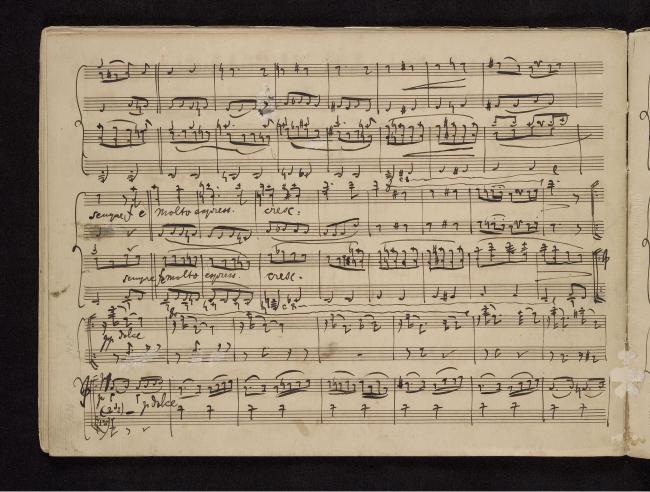 sempre f e molto express. cresc:
sempre f molto express. cresc.
pp dolce
p dolce